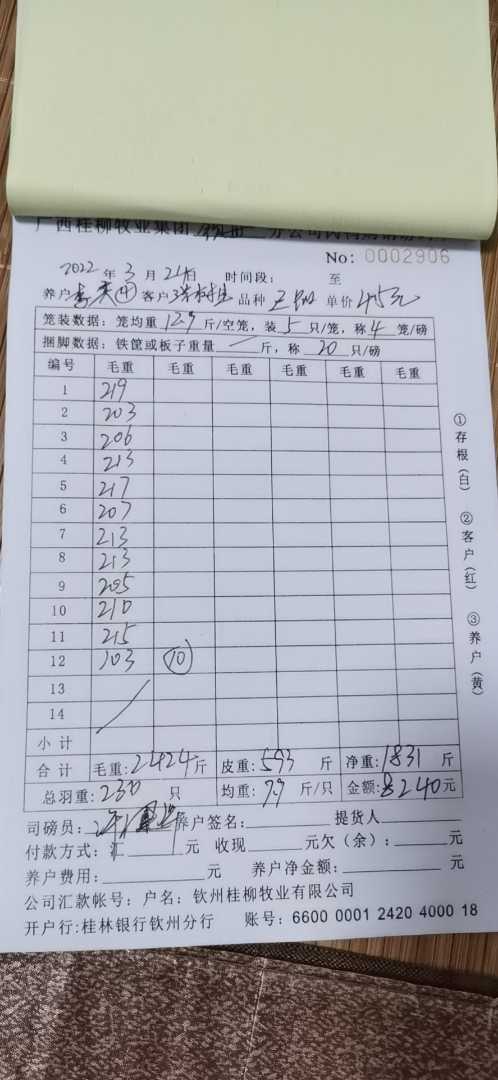 广西桂柳牧业集团
No: 0002906
2022 年 3 月 24日 时间段: 至
养户 客户 品种 单价 4.5元
笼装数据: 笼均重 12.9 斤/空笼, 装 5 只/笼, 称 4 笼/磅
捆脚数据: 铁筐或板子重量 — 斤, 称 20 只/磅
编号 毛重 毛重 毛重 毛重 毛重 毛重
1 219
2 203
3 206
4 213
5 217
6 207
7 213
8 213
9 205
10 210
11 215
12 103 10
13
14
小计
合计 毛重: 2424 斤 皮重: 593 斤 净重: 1831 斤
总羽重: 230 只 均重: 7.9 斤/只 金额: 8240 元
司磅员: 养户签名: 提货人
付款方式: 汇 元 收现 元欠(余): 元
养户费用: 元 养户净金额: 元
公司汇款帐号: 户名: 钦州桂柳牧业有限公司
开户行: 桂林银行钦州分行 账号: 6600 0001 2420 4000 18
①存根(白) ②客户(红) ③养户(黄)